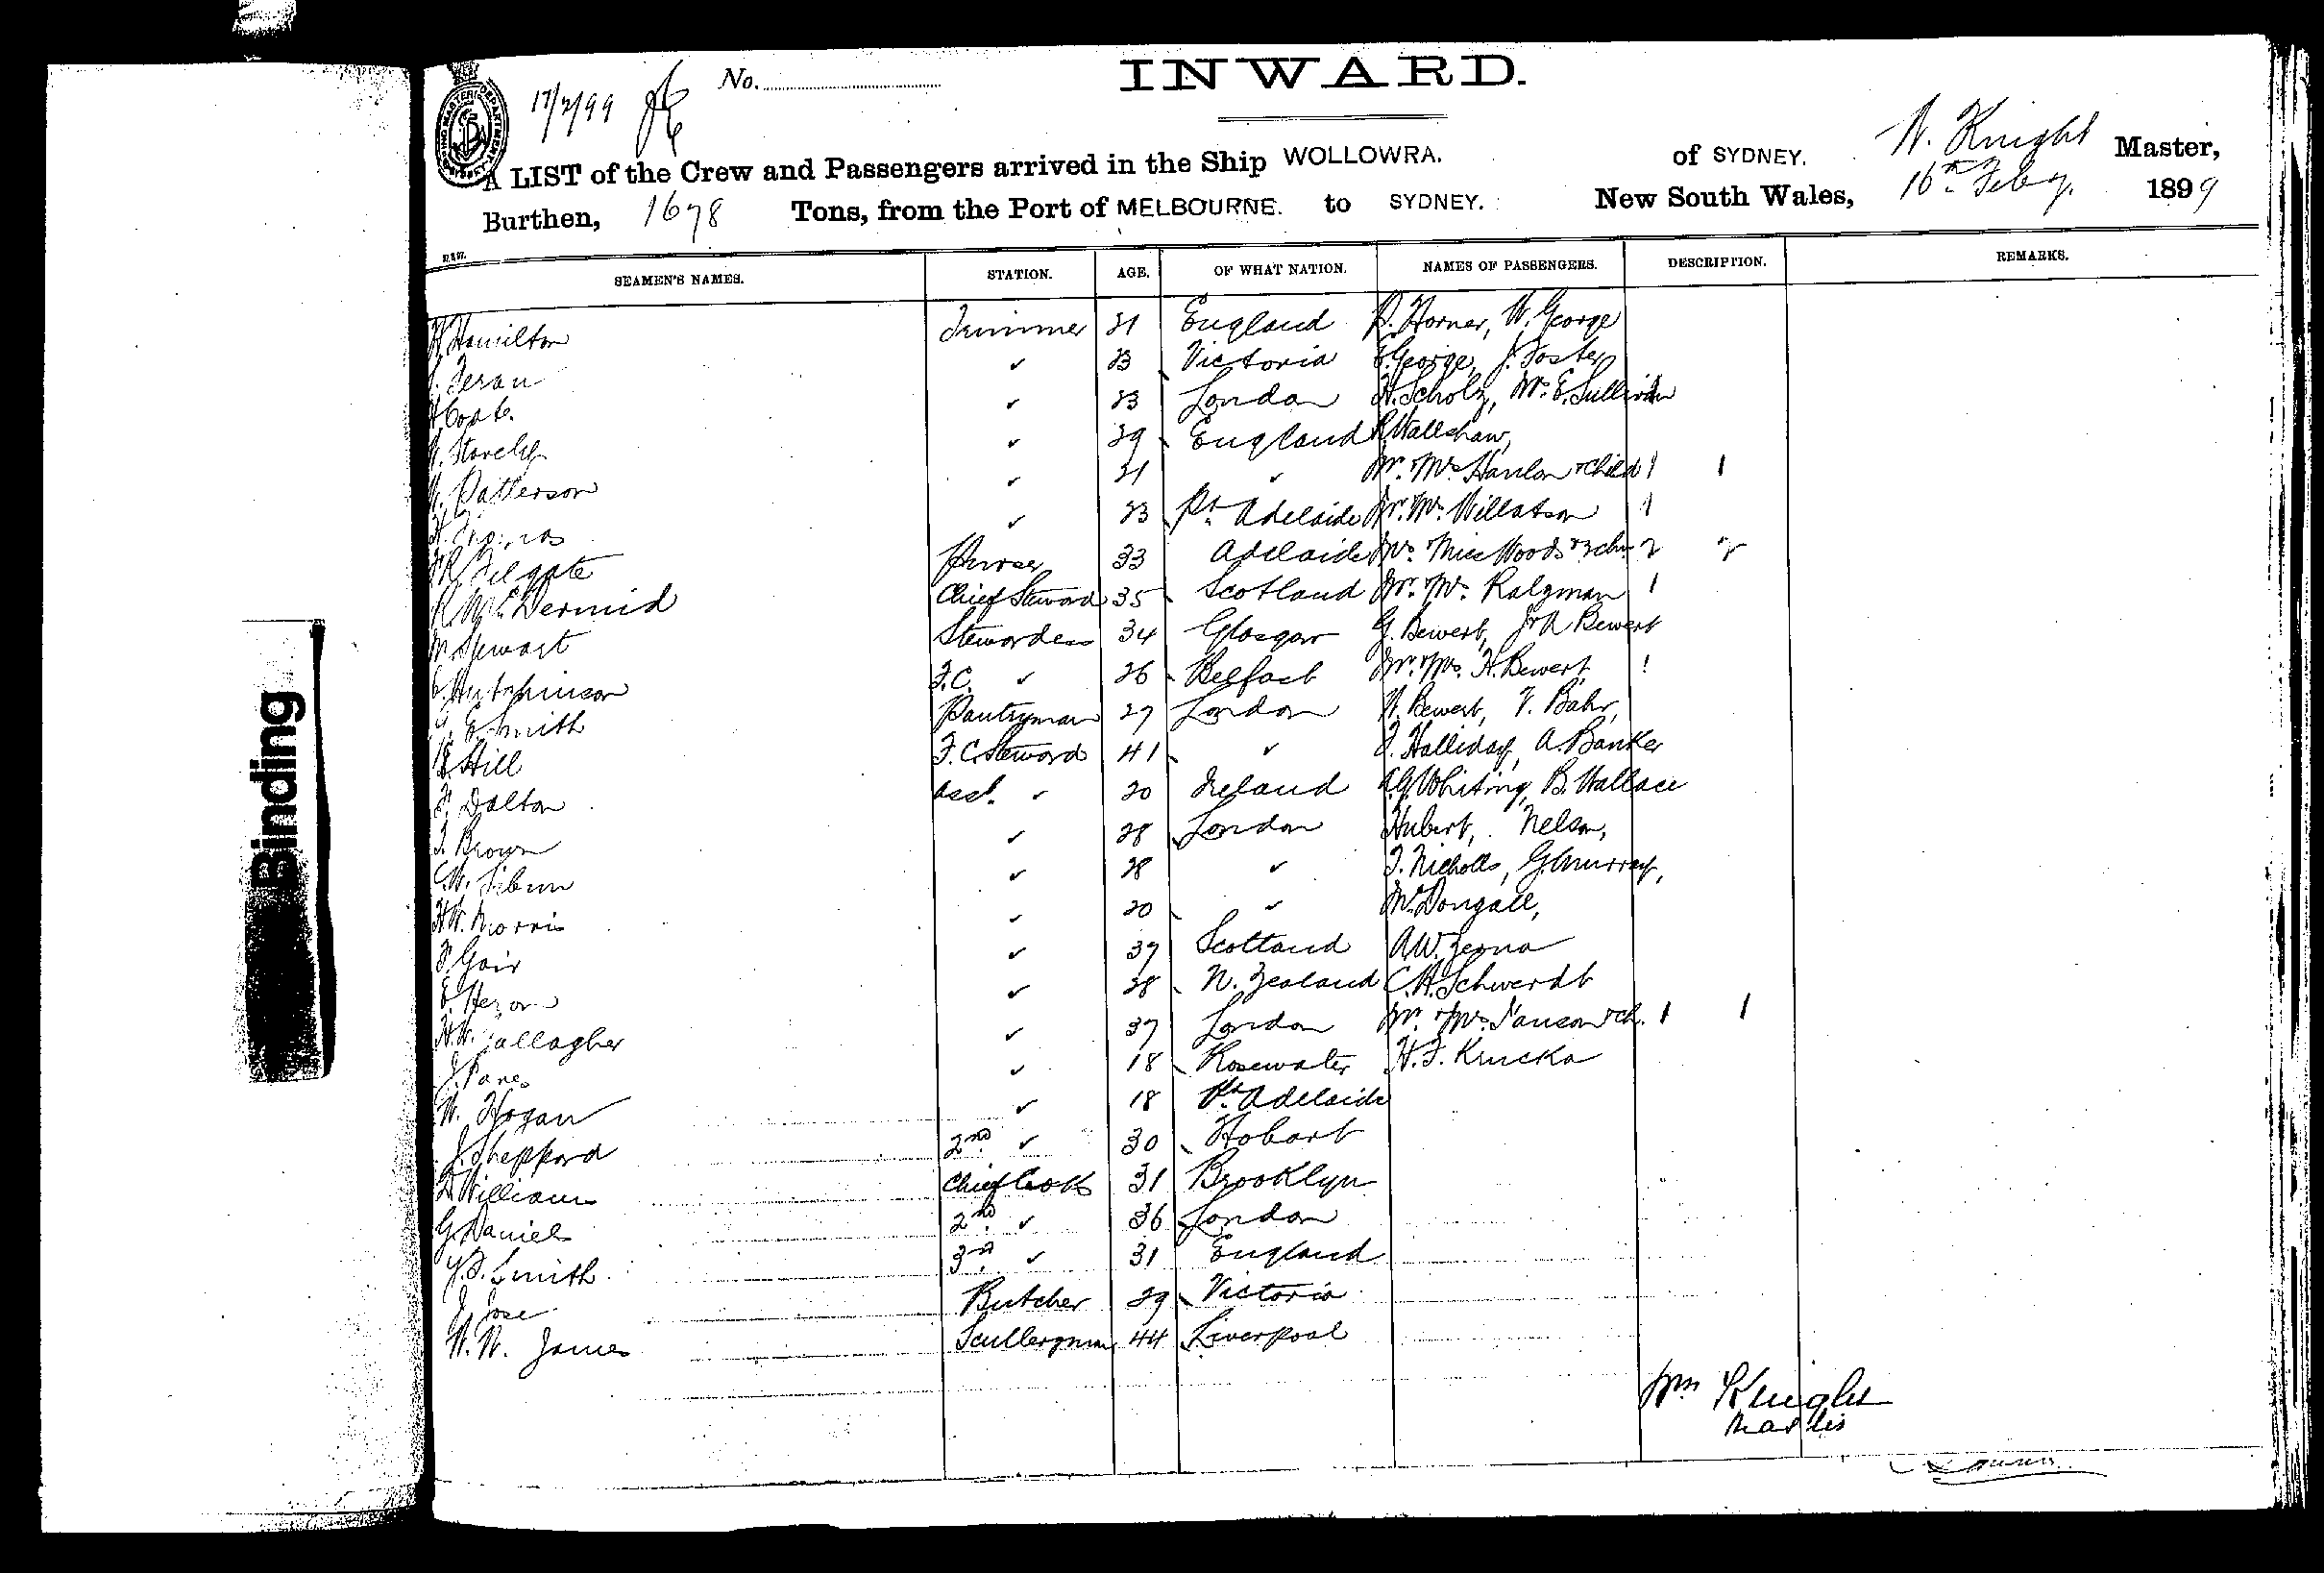 INWARD.
17/2/99 No.
A LIST of the Crew and Passengers arrived in the Ship WOLLOWRA. of SYDNEY. W. Knight Master,
Burthen, 1678 Tons, from the Port of MELBOURNE. to SYDNEY. New South Wales, 16th Feby. 1899
SEAMEN'S NAMES. STATION. AGE. OF WHAT NATION. NAMES OF PASSENGERS. DESCRIPTION. REMARKS.
Hamilton Trimmer 21 England Horner, W. George
✓ 23 Victoria George, J. Foster
✓ 23 London H. Scholz, Mr. E. Sullivan
✓ 29 England Wallshaw,
Patterson ✓ 21 ✓ Mr. Mrs. Hanlon & child 1 1
Thomas ✓ 23 Pt. Adelaide Mr. Mrs. Willatson 1
Filgate Purser 33 Adelaide Mrs. Miss Woods 2 2
McDermid Chief Steward 35 Scotland Mr. Mrs. Ralzman 1
Stewart Stewardess 34 Glasgow G. Bewert, J & A Bewert
Hutchinson F.C. ✓ 26 Belfast Mr. Mrs. H. Bewert 1
E. Smith Pantryman 27 London W. Bewert, V. Bahr,
Hill F.C. Steward 41 ✓ Halliday, A. Banker
Dalton Asst. ✓ 20 Ireland Whiting, B. Wallace
Brown ✓ 28 London Hubert, Nelson,
✓ 28 ✓ Nicholls, G. Murray,
H.W. Morris ✓ 20 ✓ McDougall,
Gair ✓ 37 Scotland A.W. Zegna
✓ 28 N. Zealand C.H. Schwerdt
Gallagher ✓ 37 London Mr. & Mrs. & ch. 1 1
✓ 18 Rosewater H.F. Krucka
W. Hogan ✓ 18 Pt. Adelaide
J. Sheppard 2nd ✓ 30 Hobart
D Williams Chief Cook 31 Brooklyn
G. Daniel 2nd ✓ 36 London
Smith 3rd ✓ 31 England
J. Jose Butcher 29 Victoria
W.W. James Sculleryman 44 Liverpool
Wm Knight
Master
Binding